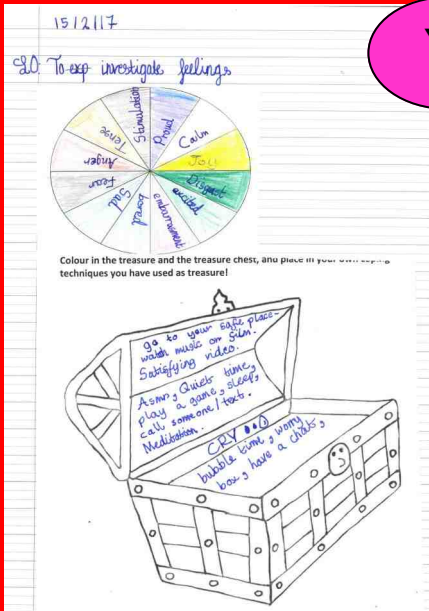 15/2/17
LO: To exp investigate feelings
Stimulation
Proud
Calm
Joy
Disgust
excited
embarrassment
bored
Sad
Fear
Anger
Tense
Colour in the treasure and the treasure chest, and place in your own coping
techniques you have used as treasure!
go to your safe place-
watch music or film.
Satisfying video.
Asmr, Quiet time,
play a game, sleep,
call someone / text.
Meditation.
CRY
bubble time, worry
box, have a chat,